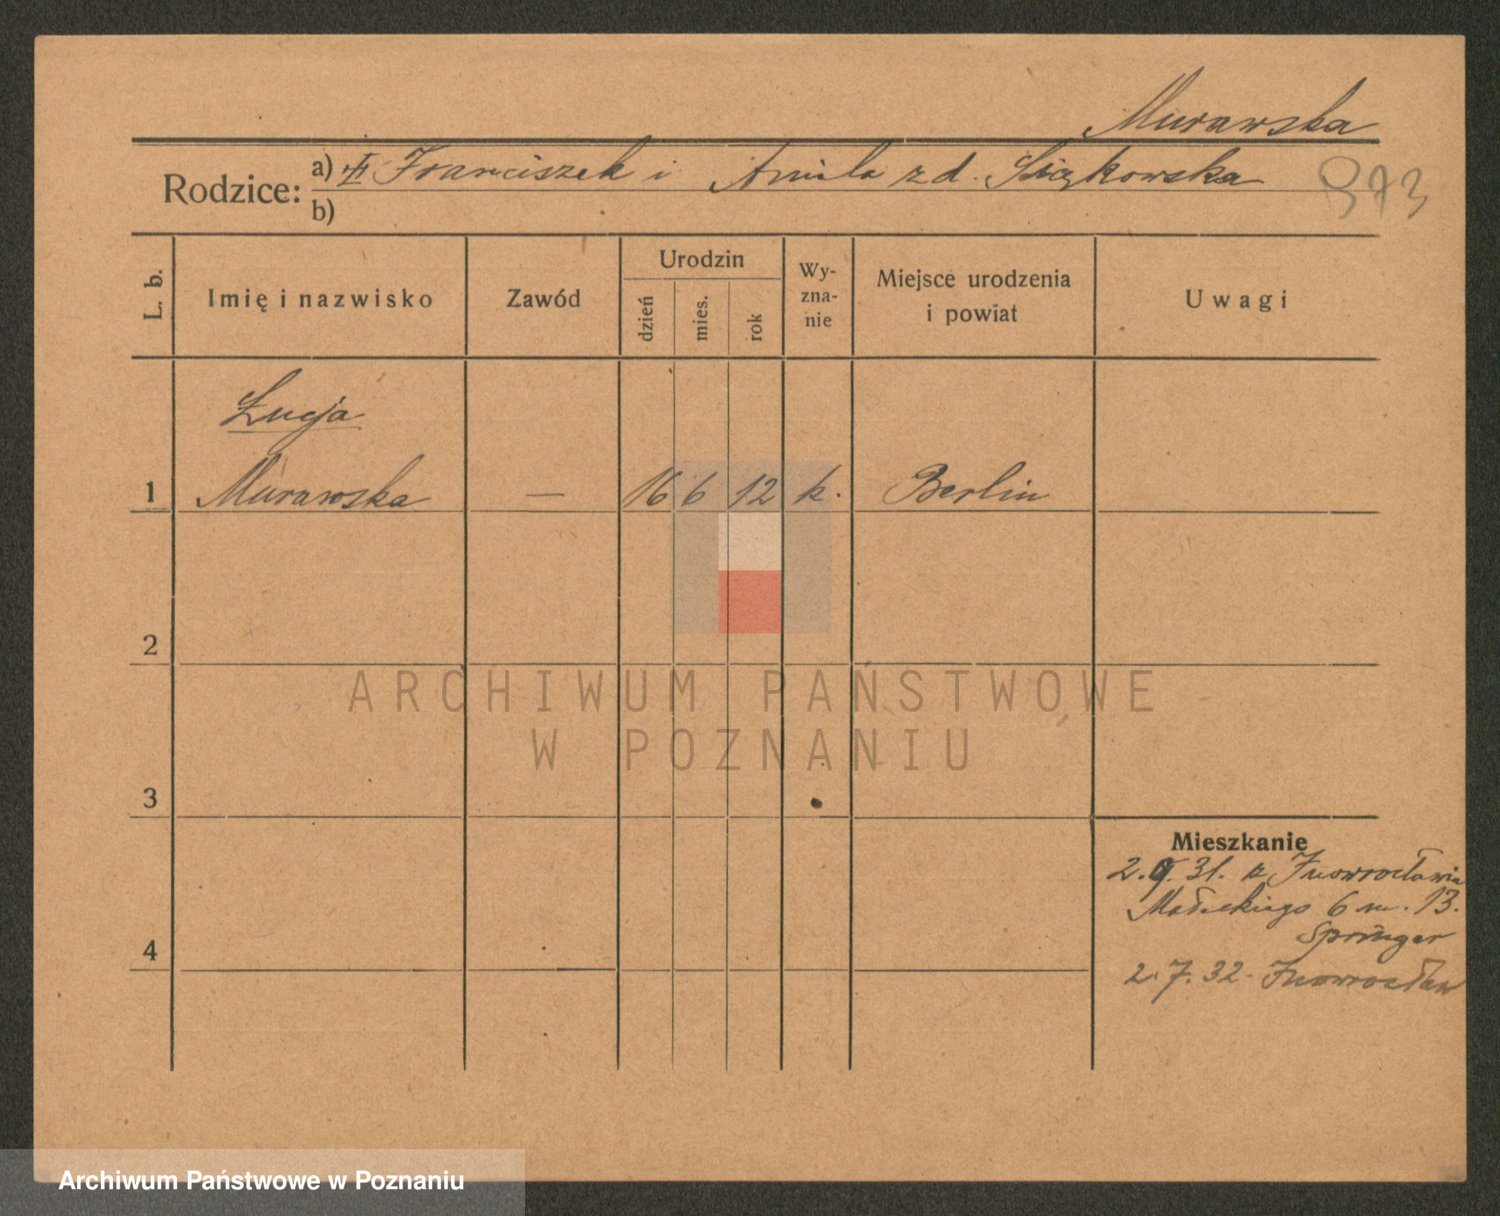 Murawska
Rodzice: a) Franciszek i Aniela z d.
b)
373
L. b.
Imię i nazwisko
Zawód
Urodzin
dzień
mies.
rok
Wy-
zna-
nie
Miejsce urodzenia
i powiat
Uwagi
Łucja
1 Murawska — 16 6 12 k. Berlin
2
3
4
Mieszkanie
2.9.31. z Inowrocławia
Małeckiego 6 m. 13.
Springer
2.7.32 - Inowrocław
ARCHIWUM PAŃSTWOWE
W POZNANIU
Archiwum Państwowe w Poznaniu